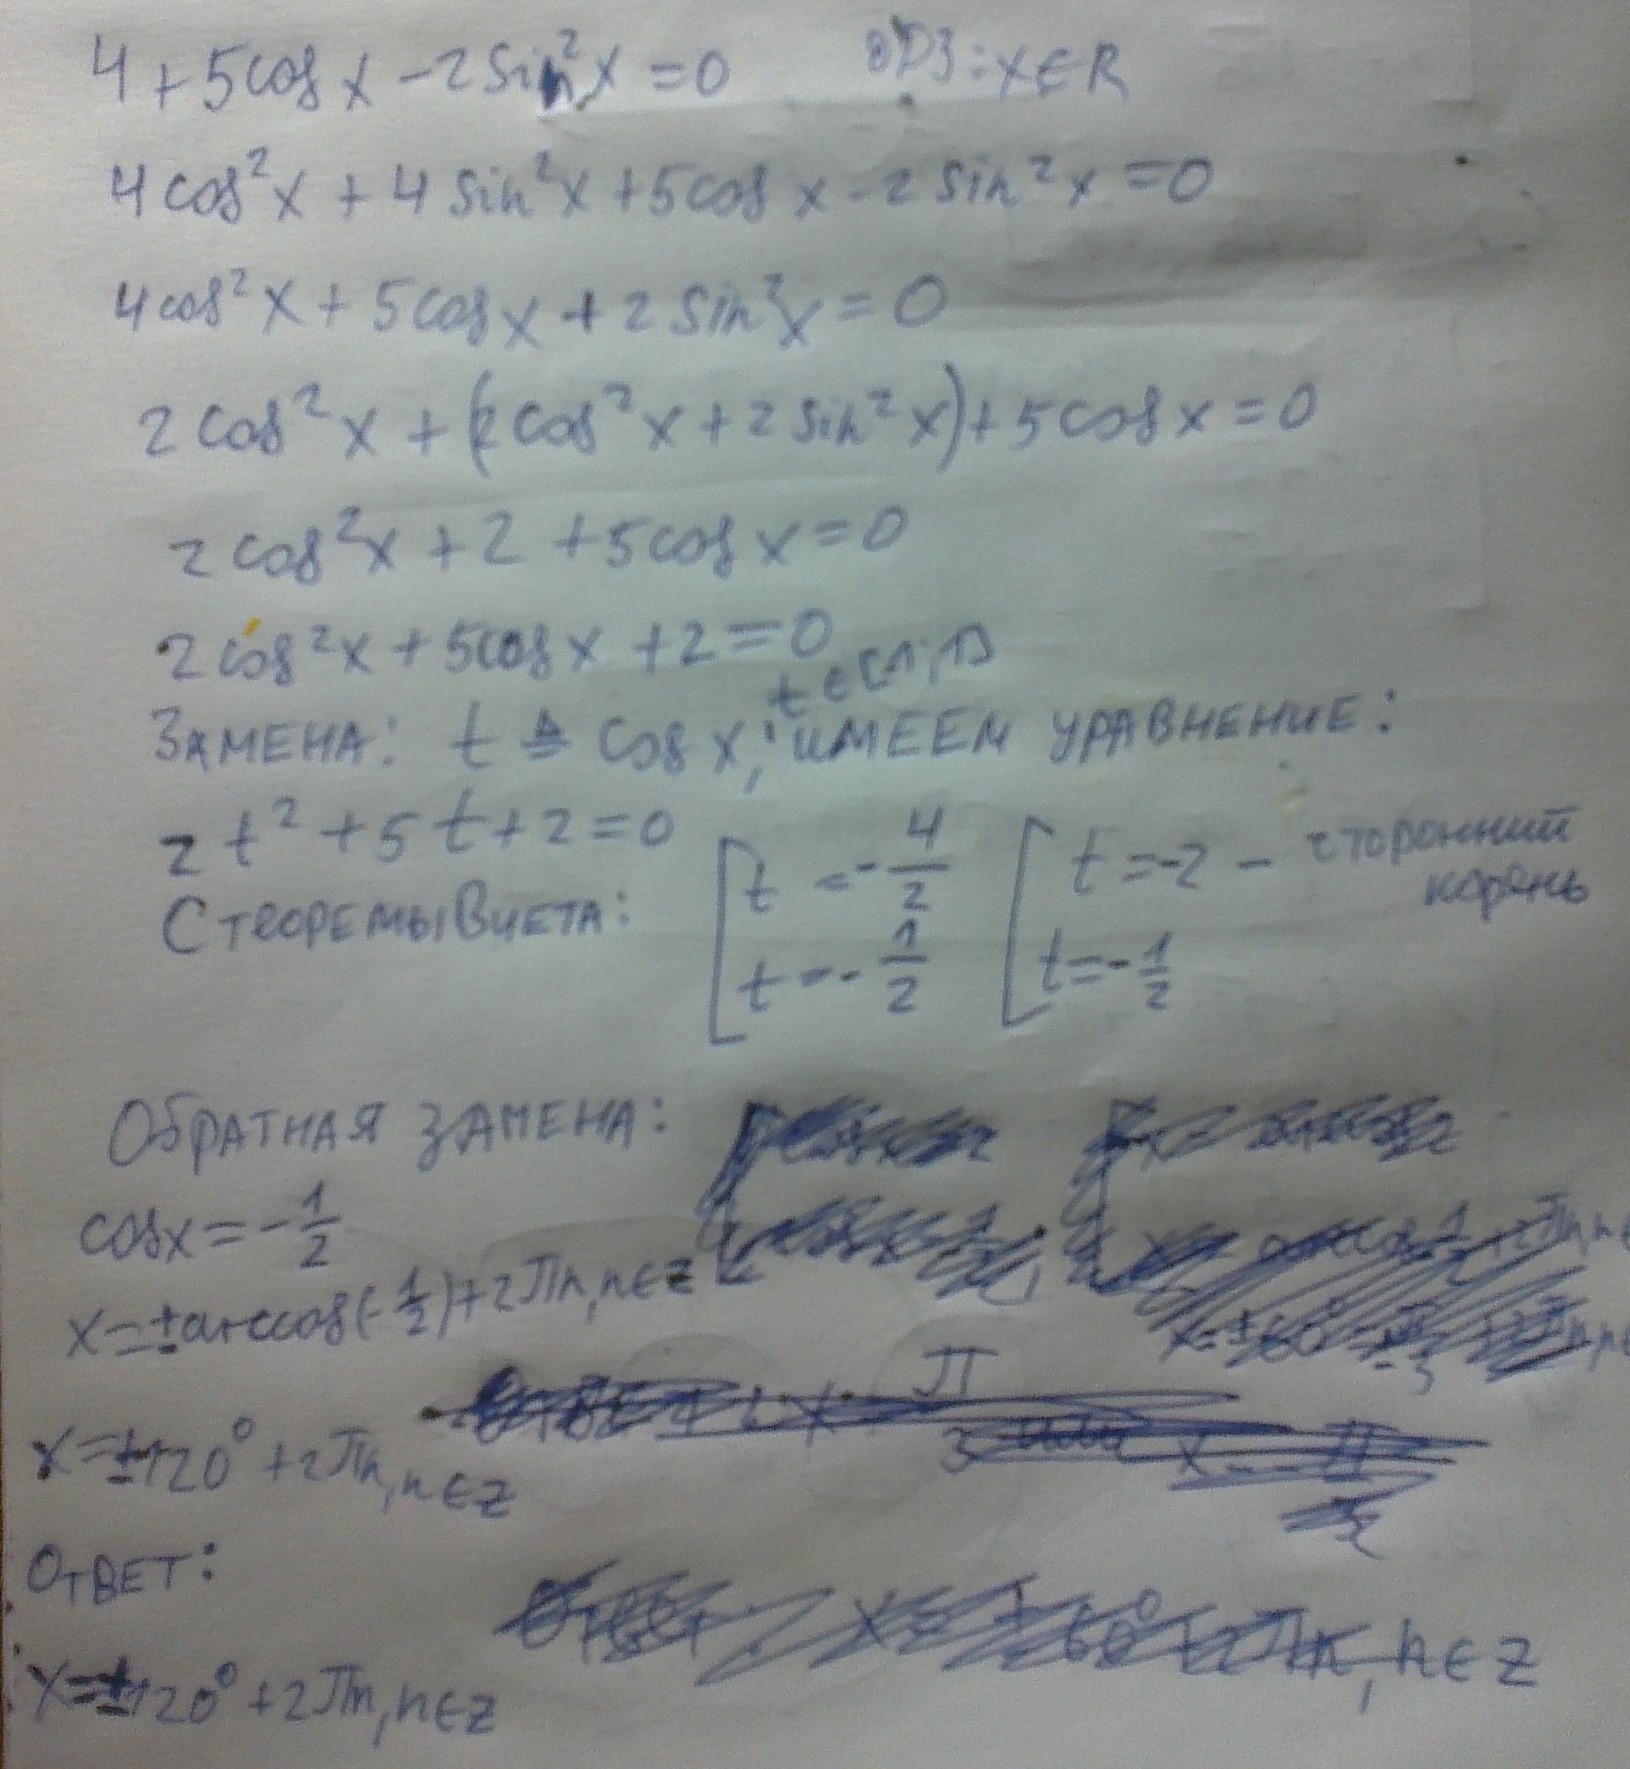 4 + 5cos x - 2sin²x = 0 ОДЗ: x∈R
4cos²x + 4sin²x + 5cos x - 2sin²x = 0
4cos²x + 5cos x + 2sin²x = 0
2cos²x + (2cos²x + 2sin²x) + 5cos x = 0
2cos²x + 2 + 5cos x = 0
2cos²x + 5cos x + 2 = 0
t∈[-1;1]
ЗАМЕНА: t ≜ cos x, ИМЕЕМ УРАВНЕНИЕ:
2t² + 5t + 2 = 0
С ТЕОРЕМЫ ВИЕТА: [t = -4/2 [t = -2 - сторонний корень
t = -1/2 t = -1/2
ОБРАТНАЯ ЗАМЕНА:
cos x = -1/2
x = ±arccos(-1/2) + 2πn, n∈Z
x = ±120° + 2πn, n∈Z
ОТВЕТ:
x = ±120° + 2πn, n∈Z